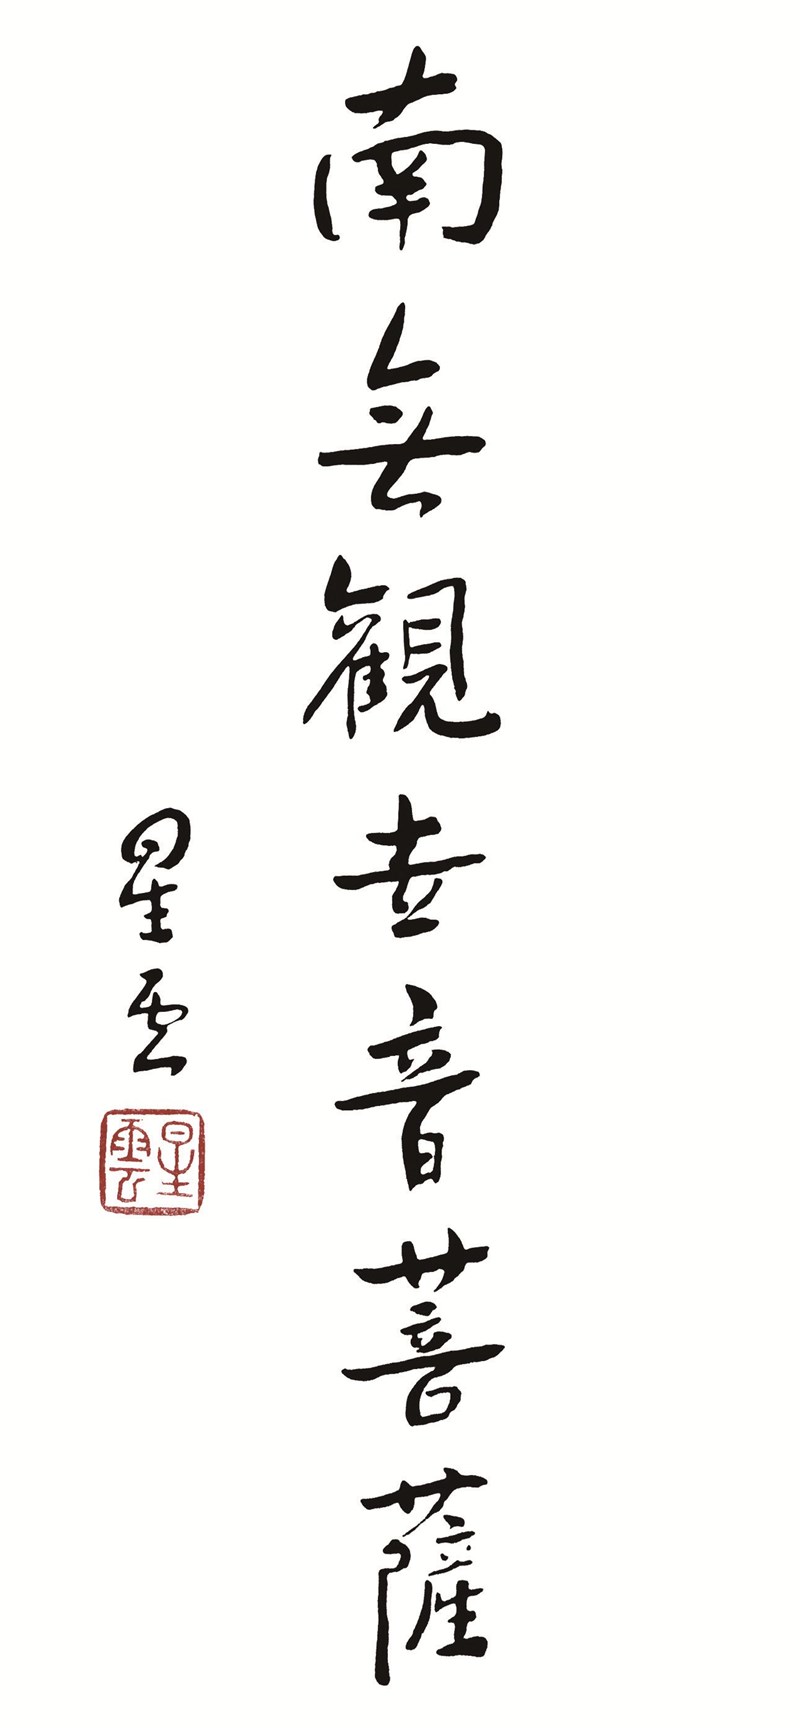 南無觀世音菩薩
星雲
星雲